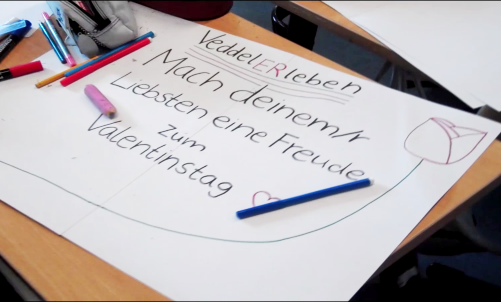 VeddelERleben
Mach deinem/r
Liebsten eine Freude
zum
Valentinstag